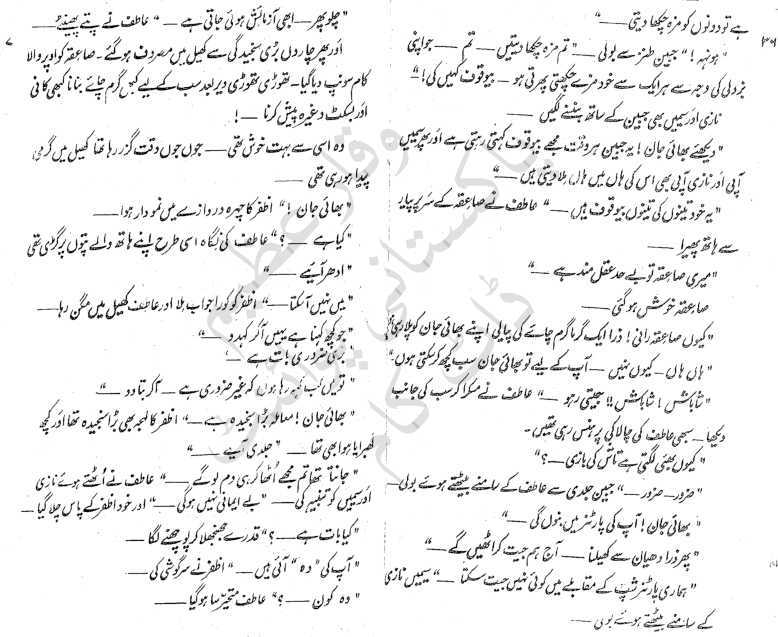 ہے تو دونوں کو مزہ چکھا دیتی —"
"ہونہہ!" جبین طنز سے بولی — "تم مزہ چکھا دیتیں — تم — جو اپنی
بزدلی کی وجہ سے ہر ایک سے خود مزے چکھتی پھرتی ہو۔ بیوقوف کہیں کی!"
نازی اور سیمیں بھی جبین کے ساتھ ہنسنے لگیں —
"دیکھئے بھائی جان! یہ جبین ہر وقت مجھے بیوقوف کہتی رہتی ہے اور پھر سیمیں
آپی اور نازی آپی بھی اس کی ہاں میں ہاں ملا دیتی ہیں —"
"یہ خود تینوں کی تینوں بیوقوف ہیں —" عاطف نے صاعقہ کے سر پر پیار
سے ہاتھ پھیرا —
"میری صاعقہ تو بے حد عقل مند ہے —"
صاعقہ خوش ہو گئی —
"کیوں صاعقہ رانی! ذرا ایک گرما گرم چائے کی پیالی اپنے بھائی جان کو پلا رہی ہو
"ہاں ہاں — کیوں نہیں — آپ کے لیے تو بھائی جان سب کچھ کر سکتی ہوں"
"شاباش! شاباش!! جیتی رہو —" عاطف نے مسکرا کر سب کی جانب
دیکھا۔ سبھی عاطف کی چالاکی پر ہنس رہی تھیں۔
"کیوں بھئی لگتی ہے تاش کی بازی —؟"
"ضرور۔ ضرور —" جبین جلدی سے عاطف کے سامنے بیٹھتے ہوئے بولی —
"بھائی جان! آپ کی پارٹنر میں بنوں گی —"
"پھر ذرا دھیان سے کھیلنا — آج ہم جیت کر اٹھیں گے —"
"ہماری پارٹنر شپ کے مقابلے میں کوئی نہیں جیت سکتا —" سیمیں نازی
کے سامنے بیٹھتے ہوئے بولی —
"چلو پھر — ابھی آزمائش ہوئی جاتی ہے —" عاطف نے پتے پھینٹے
اور پھر چاروں بڑی سنجیدگی سے کھیل میں مصروف ہو گئے۔ صاعقہ کو اوپر والا
کام سونپ دیا گیا۔ تھوڑی تھوڑی دیر بعد سب کے لیے کبھی گرم چائے بنانا کبھی کافی
اور بسکٹ وغیرہ پیش کرنا —!
وہ اسی سے بہت خوش تھی — جوں جوں وقت گزر رہا تھا کھیل میں گرمی
پیدا ہو رہی تھی —
"بھائی جان!" اظفر کا چہرہ دروازے میں نمودار ہوا —
"کیا ہے —؟" عاطف کی نگاہ اسی طرح اپنے ہاتھ والے پتوں پر گڑی تھی
"ادھر آئیے —"
"میں نہیں آ سکتا —" اظفر کو کورا جواب ملا اور عاطف کھیل میں مگن رہا —
"جو کچھ کہنا ہے یہیں آ کر کہہ دو —"
"بڑی ضروری بات ہے —"
"تو میں کب کہہ رہا ہوں کہ غیر ضروری ہے — آ کر بتا دو —"
"بھائی جان! معاملہ بڑا سنجیدہ ہے —" اظفر کا لہجہ بھی بڑا سنجیدہ تھا اور کچھ
گھبرایا ہوا بھی تھا — "جلدی آیئے —"
"جانتا تھا تم مجھے اٹھا کر ہی دم لو گے —" عاطف نے اٹھتے ہوئے نازی
اور سیمیں کو تنبیہہ کی — "بے ایمانی نہیں ہو گی —" اور خود اظفر کے پاس چلا گیا —
"کیا بات ہے —؟" قدرے جھنجھلا کر پوچھنے لگا —
"آپ کی "وہ" آئی ہیں —" اظفر نے سرگوشی کی —
"وہ کون —؟" عاطف متحیر سا ہو گیا —